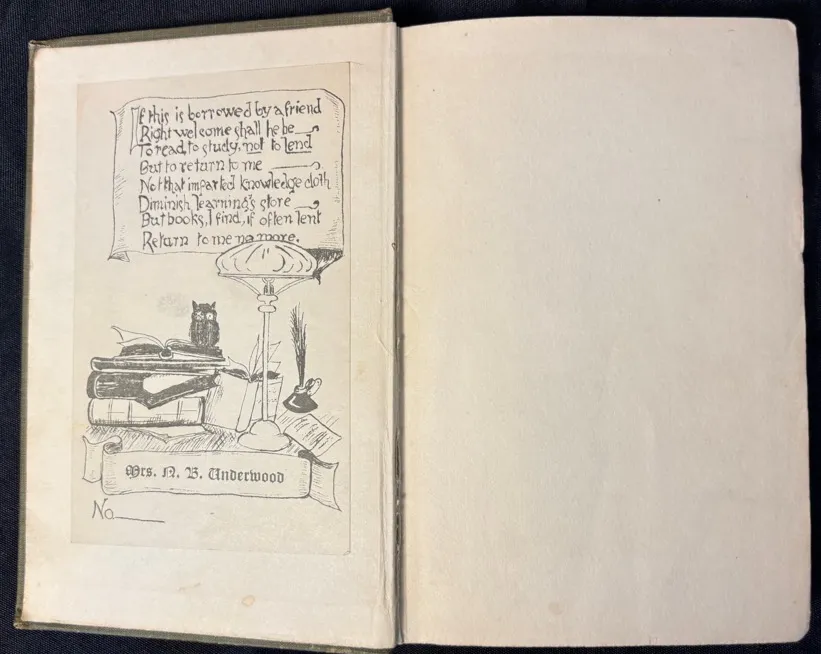 If this is borrowed by a friend
Right welcome shall he be
To read, to study, not to lend
But to return to me
Not that imparted knowledge doth
Diminish learning's store
But books, I find, if often lent
Return to me no more.
Mrs. N. B. Underwood
No